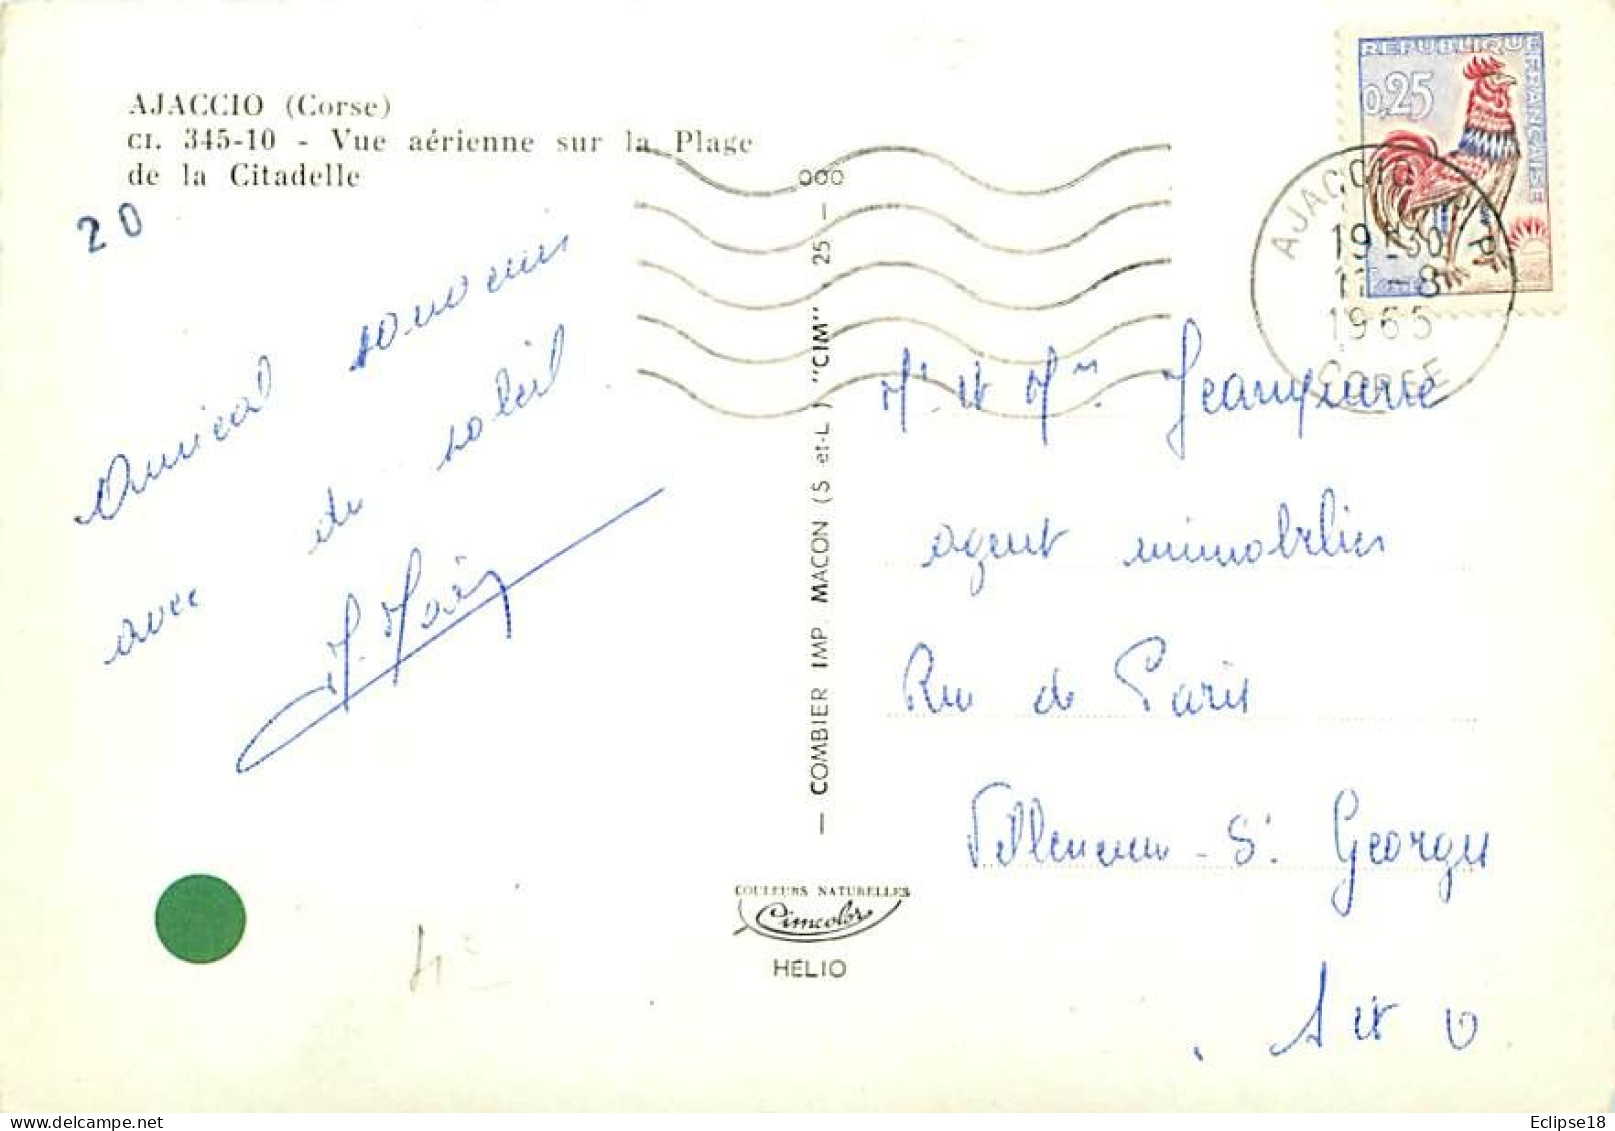 AJACCIO (Corse)
CI. 345-10 - Vue aérienne sur la Plage
de la Citadelle
20
Amical souvenir
avec du soleil
— COMBIER IMP. MACON (S-et-L) "CIM" 25 — 000
REPUBLIQUE FRANÇAISE
0,25
AJACCIO
1965
CORSE
Mr et Mme Jeanpierre
agent immobilier
Rue de Paris
Villeneuve - St Georges
S et O
COULEURS NATURELLES
Cimcolor
HELIO
Eclipse18